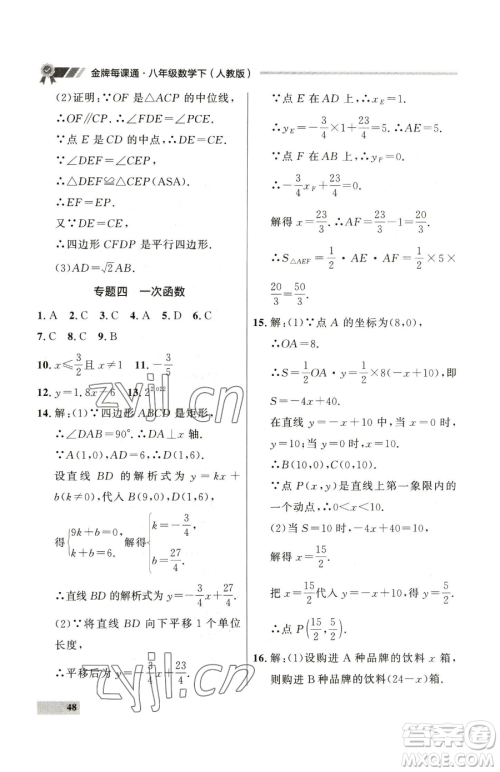 金牌每课通·八年级数学下（人教版）
(2)证明：∵OF是△ACP的中位线，
∴OF∥CP.∴∠FDE=∠PCE.
∵点E是CD的中点，∴DE=CE.
∵∠DEF=∠CEP，
∴△DEF≌△CEP(ASA).
∴DF=CP.
又∵DF∥CP，
∴四边形CFDP是平行四边形.
(3)AD=√2AB.
专题四 一次函数
1.A 2.C 3.C 4.A 5.D 6.B
7.C 8.C 9.B
10.x≤3/2且x≠1 11.-3/5
12.y=1.8x-6 13.2^2022
14.解：(1)∵四边形ABCD是矩形，
∴∠DAB=90°.∴AD⊥x轴.
∵A(1,0)，AD=6，∴D(1,6).
设直线BD的解析式为y=kx+
b(k≠0)，代入B(9,0)，D(1,6)，
得{9k+b=0, k+b=6. 解得{k=-3/4, b=27/4.
∴直线BD的解析式为y=-3/4x+27/4.
(2)∵将直线BD向下平移1个单位
长度，
∴平移后为y=-3/4x+23/4.
48
∵点E在AD上，∴x=1.
∴y_E=-3/4×1+23/4=5.∴AE=5.
∵点F在AB上，
∴-3/4x_F+23/4=0.
解得x=23/3.∴AF=23/3-1=20/3.
∴S△AEF=1/2·AE·AF=1/2×5×
20/3=50/3.
15.解：(1)∵点A的坐标为(8,0)，
∴OA=8.
∴S=1/2OA·y=1/2×8(-x+10).
∴S=-4x+40.
在直线y=-x+10中，当y=0
时，-x+10=0.解得x=10.
∴B(10,0).
∵点P(x,y)是直线上第一象限内的
一个动点，∴0<x<10.
(2)当S=10时，-4x+40=10.
解得x=15/2.
把x=15/2代入y=-x+10，得y=5/2.
∴点P(15/2,5/2).
16.解：(1)设购进A种品牌的饮料x箱，
则购进B种品牌的饮料(24-x)箱.
zyjl.cn
答案圈
MXQE.COM